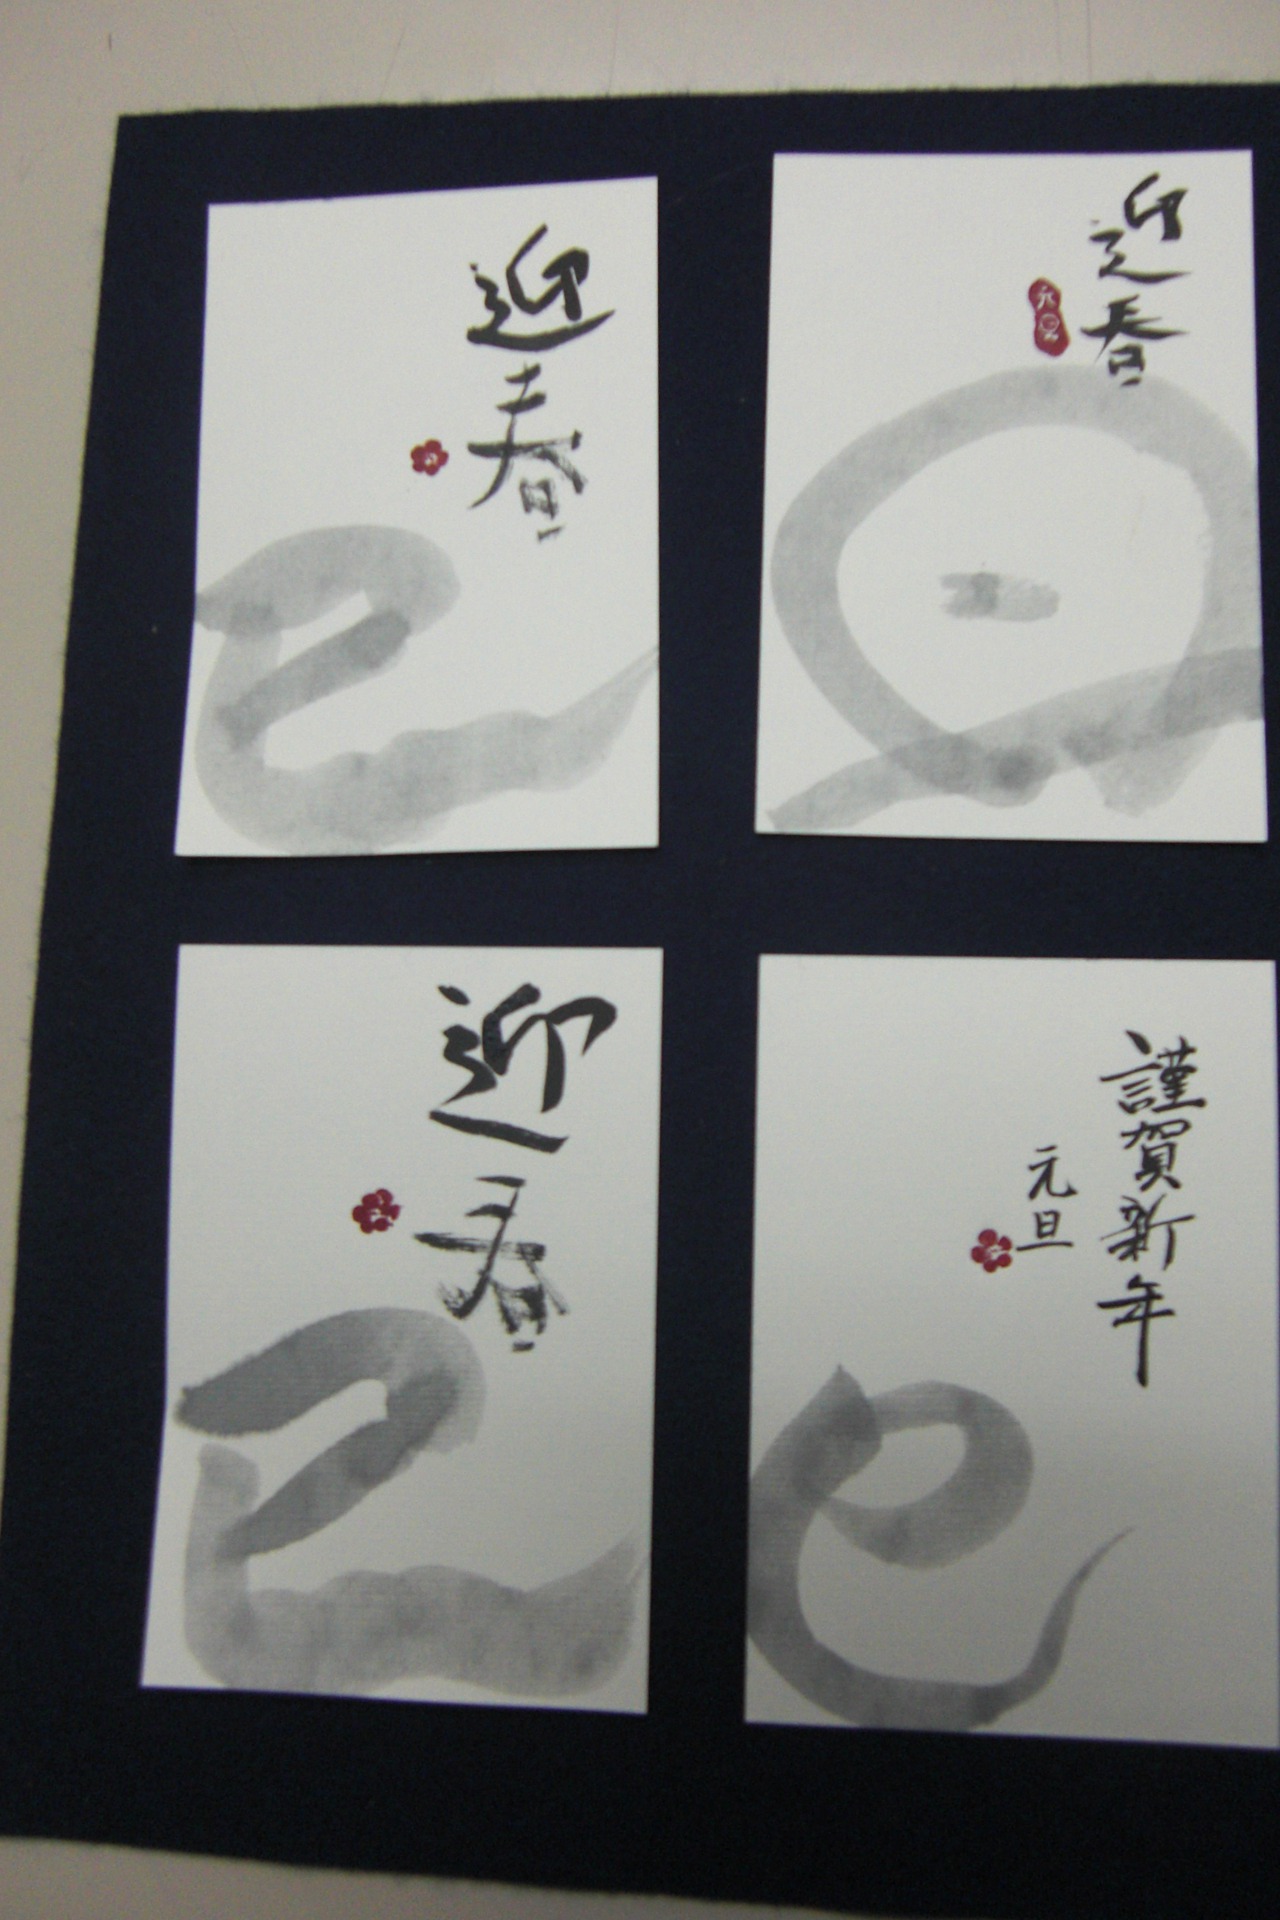 迎春
迎春
元旦
迎春
謹賀新年
元旦